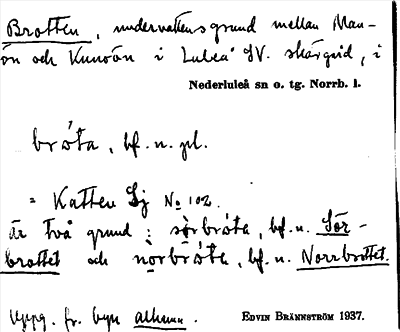 Brotten, undervattensgrund mellan Man-
ön och Kunoön i Luleå SV. skärgård, i
Nederluleå sn o. tg. Norrb. l.
bróta, bf. n. pl.
= Katten Sj No 102.
är två grund: sörbróta, bf. n. Sör-
brottet och nòrbróta, bf. n. Norrbrottet.
Uppg. fr. byn allmn.
EDVIN BRÄNNSTRÖM 1937.